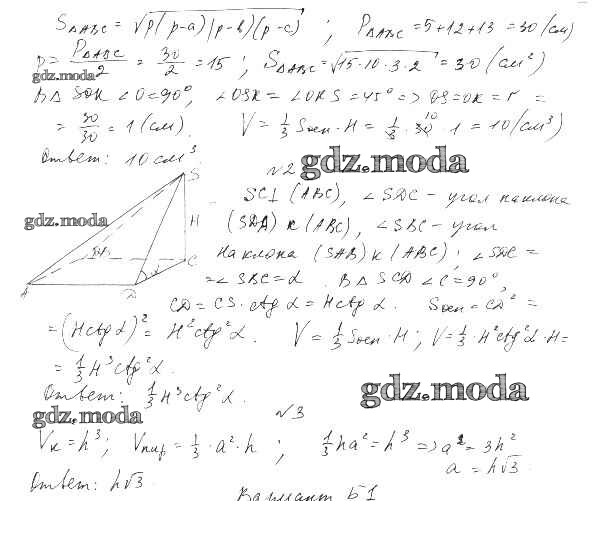 S△ABC = √p(p-a)(p-b)(p-c) ; P△ABC = 5+12+13 = 30 (см)
p = P△ABC/2 = 30/2 = 15 ; S△ABC = √15·10·3·2 = 30 (см²)
gdz.moda
В △ SOK ∠O=90°, ∠OSK = ∠OKS = 45° => OS=OK = r =
= 30/30 = 1 (см). V = 1/3 Sосн · H = 1/3 · 30 · 1 = 10 (см³)
10
Ответ: 10 см³.
№2
gdz.moda
S
H
C
B
A
D
α
gdz.moda
SC⊥(ABC), ∠SDC - угол наклона
(SDA) к (ABC), ∠SBC - угол
наклона (SAB) к (ABC); ∠SDC =
= ∠SBC = α. В △ SCD ∠C = 90°,
CD = CS · ctg α = H ctg α. Sосн = CD² =
= (H ctg α)² = H² ctg² α. V = 1/3 Sосн · H ; V = 1/3 · H² ctg² α · H =
= 1/3 H³ ctg² α.
Ответ: 1/3 H³ ctg² α.
gdz.moda
gdz.moda
№3
Vк = h³ ; Vпир = 1/3 · a² · h ; 1/3 ha² = h³ => a² = 3h²
a = h√3.
Ответ: h√3.
Вариант Б1